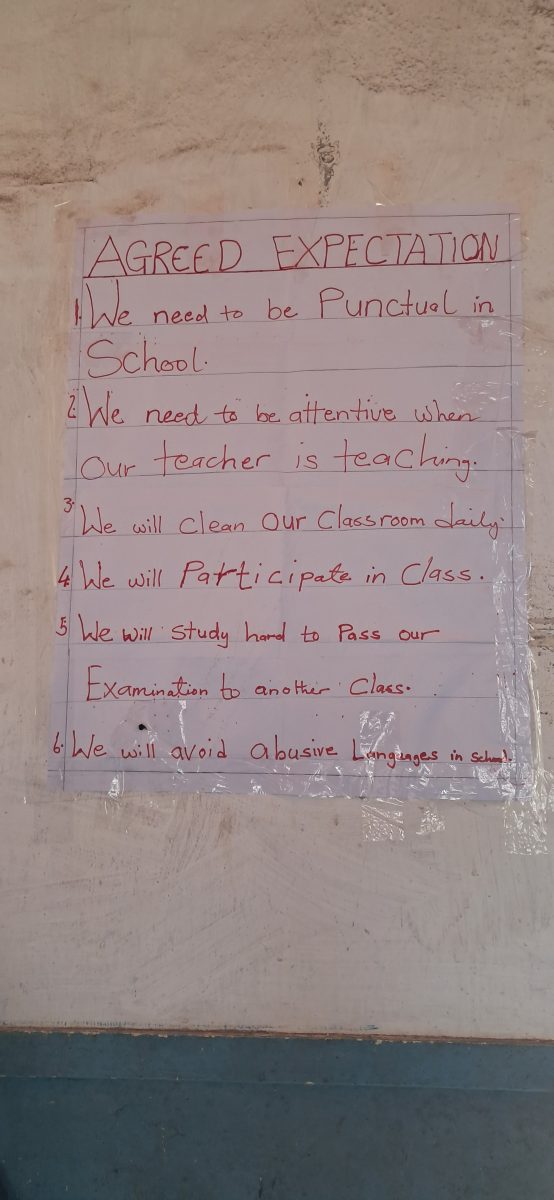 AGREED EXPECTATION
1. We need to be Punctual in
School.
2. We need to be attentive when
our teacher is teaching.
3. We will clean our classroom daily.
4. We will Participate in Class.
5 We will study hard to Pass our
Examination to another Class.
6. We will avoid abusive Languages in school.